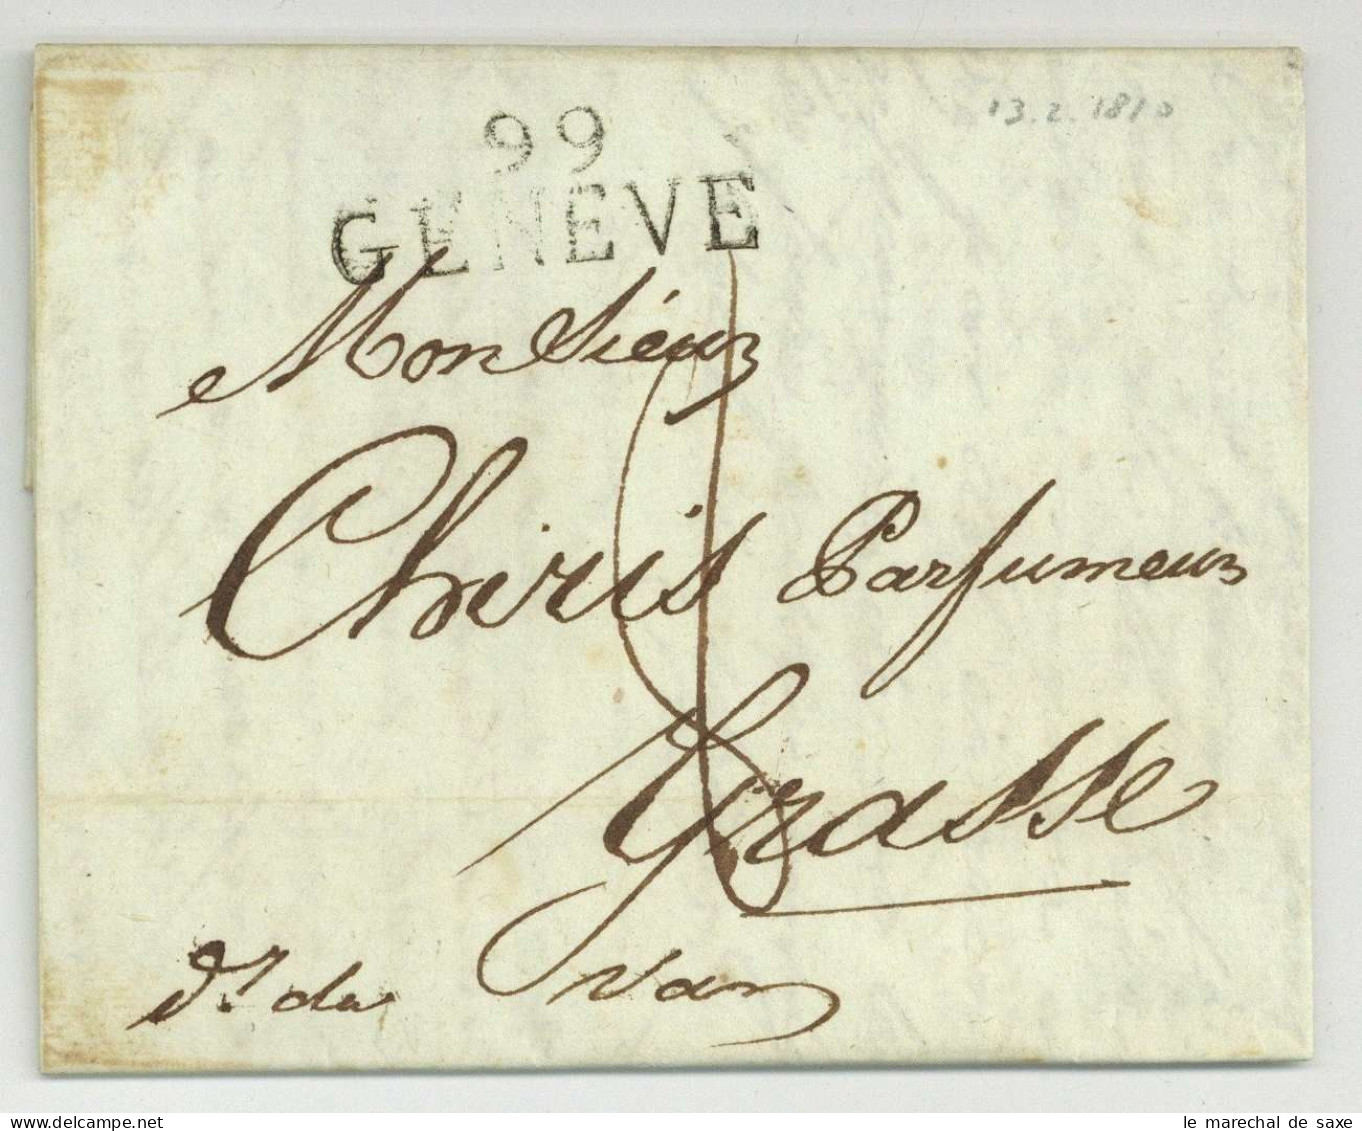 13.2.1810
99
GENEVE
Monsieur
Chiris Parfumeur
Grasse
Dt. du Var
delcampe.net
le marechal de saxe